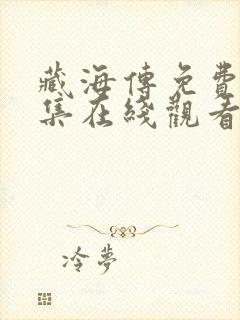 藏海傳免費
集在綫觀看
冷夢